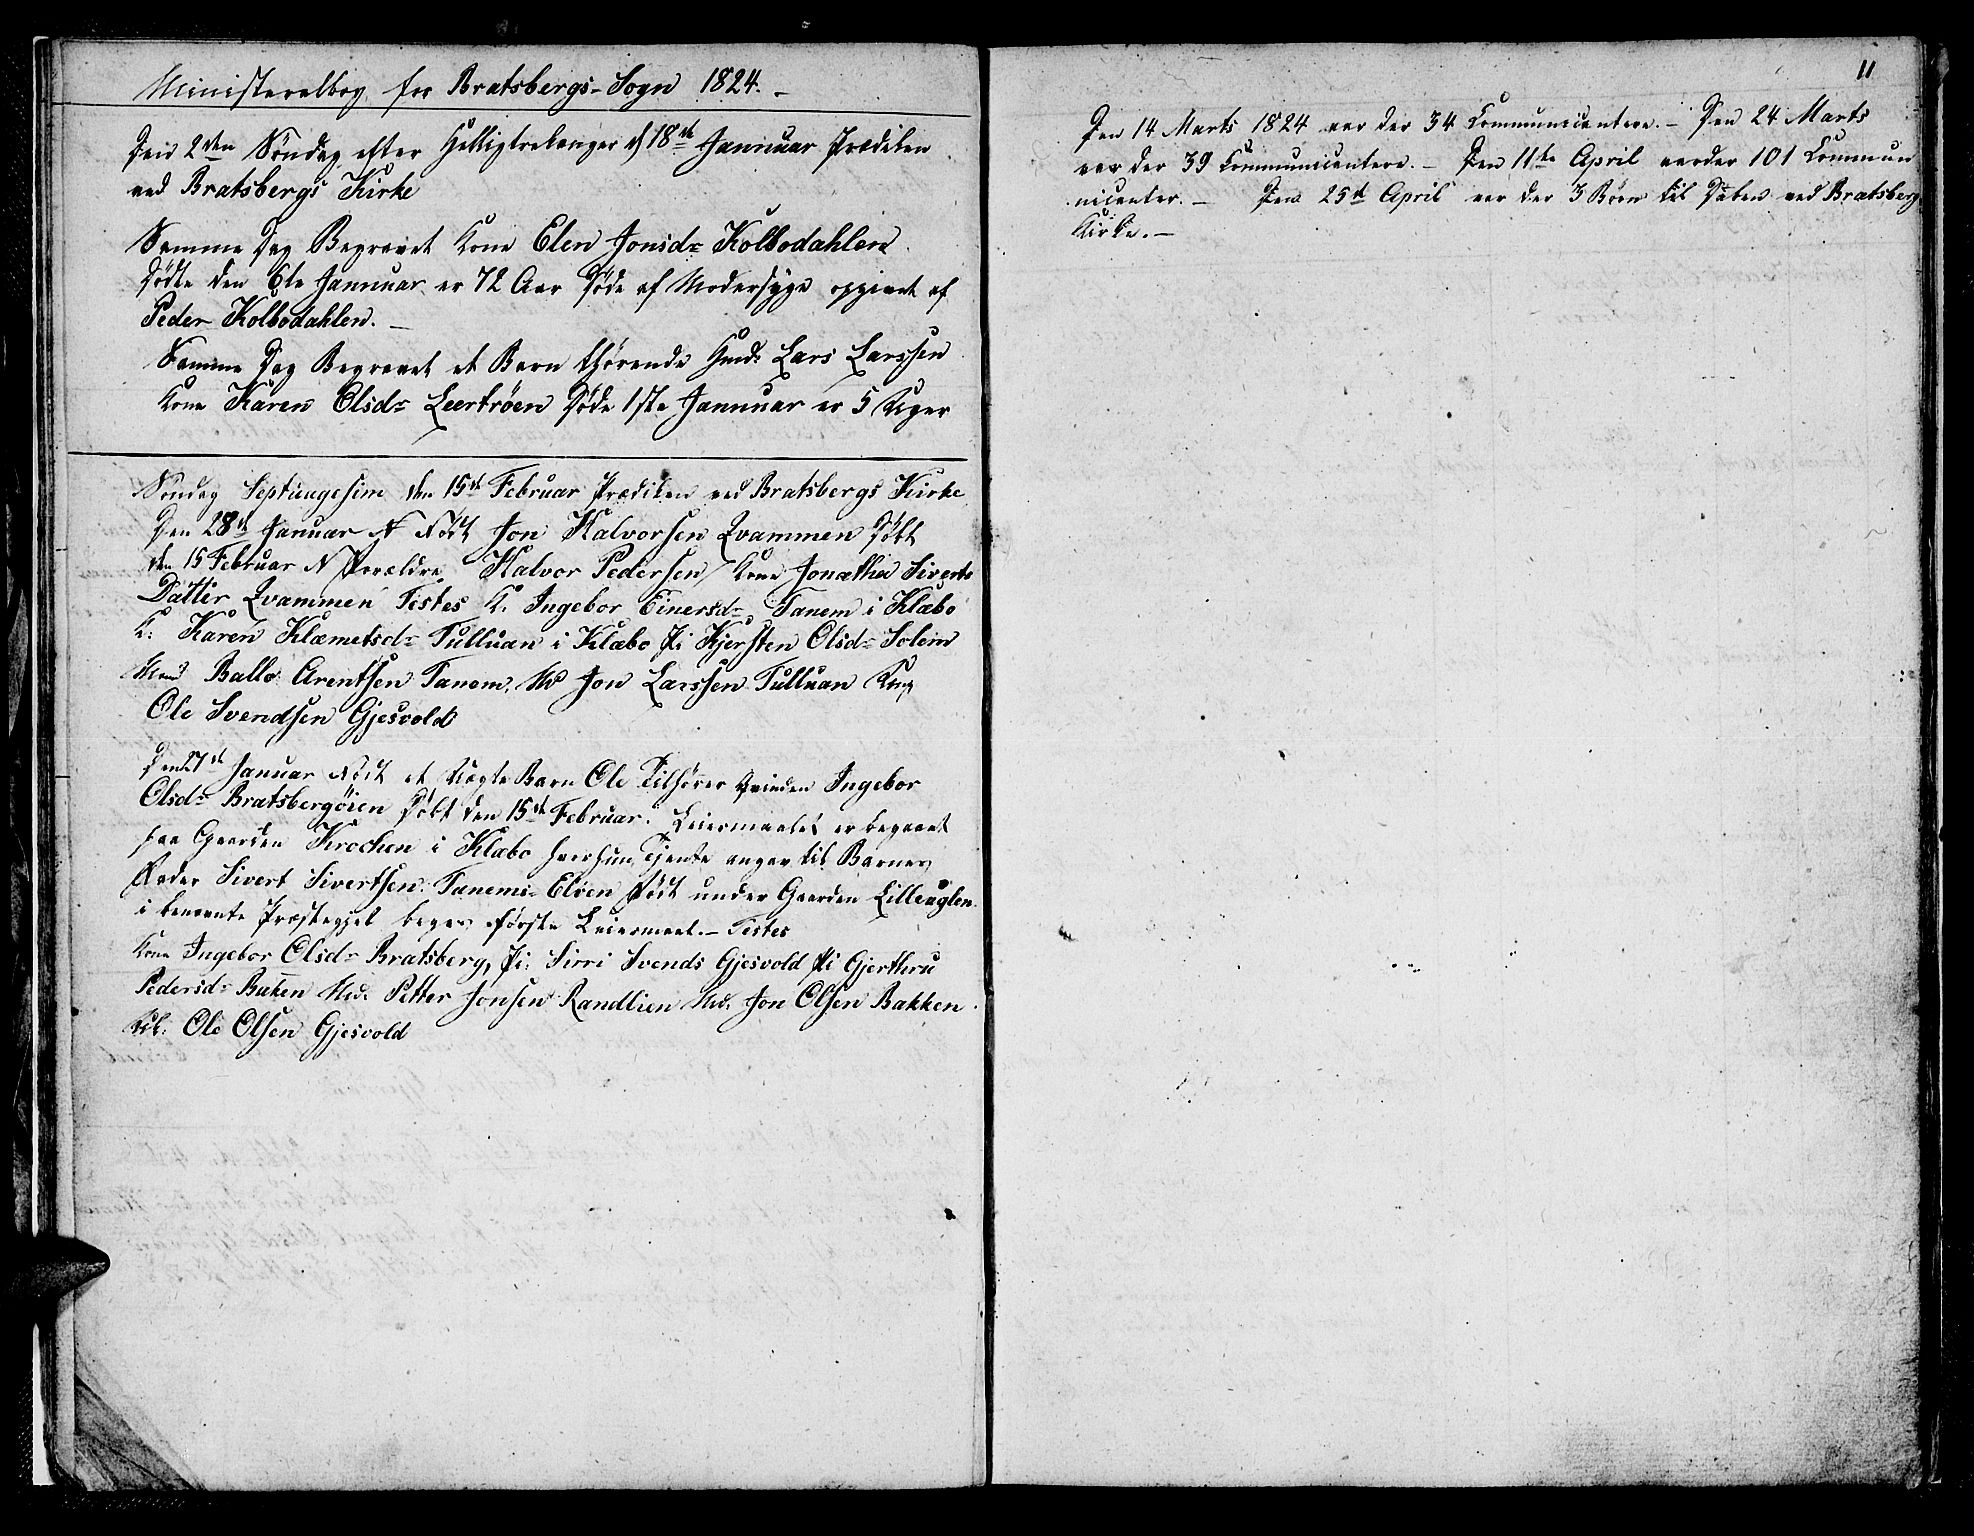 Ministeralbog for Bratsbergs-Sogn 1824.-
Den 2den Söndag efter Helligtrekonger d 18de Januuar Prædiken
ved Bratsbergs Kirke
Samme Dag Begravet Kone Elen Jonsdr Kolbodahlen
Dödte den 6te Januuar er 72 Aar Döde af Modersyge opgivet af
Peder Kolbodahlen.-
Samme Dag Begravet et Barn thörende Hmd: Lars Larssen
Kone Karen Olsdr Leertröen Döde 1ste Januuar er 5 Uger
Söndag Septuugesim den 15de Februar Prædiken ved Bratsbergs Kirke
Den 28de Januar Födt Jon Halvorsen Qvammen Döbt
den 15 Februar Forældre Halvor Pedersen Kone Jonætha Siverts
Datter Qvammen Testes K. Ingebor Einersdr Tanem i Klæbo
K: Karen Klæmetsdr Tulluan i Klæbo Pi Kjersten Olsdr Solem
Mand Balto Arentsen Tanem, Md Jon Larssen Tulluan Ung
Ole Svendsen Gjesvold
Den 27de Januar Födt et Uægte Barn Ole Tilhörer Qvinden Ingebor
Olsdr Bratsbergöien Döbt den 15de Februar. Leiermaalet er begaaet
paa Gaarden Krochen i Klæbo hvor hun Tjente angav til Barnes
Fader Sivert Sivertsen Tanems-Elven Födt under Gaarden Lilleuglen
i benevnte Præstegjel beges förste Leiermaal.- Testes
Kone Ingebor Olsdr Bratsberg, Pi: Sirri Svends Gjesvold Pi Gjerthru
Pedersdr Baken Md. Petter Jonsen Randlien Md. Jon Olsen Bakken
Ole Olsen Gjesvold
11
Den 14 Marts 1824 var der 34 Communicantere.- Den 24 Marts
var der 39 Communicantere.- Den 11te April var der 101 Commun
nicanter.- Den 25de April var der 3 Börn til Daben ved Bratsberg
Kirke.-